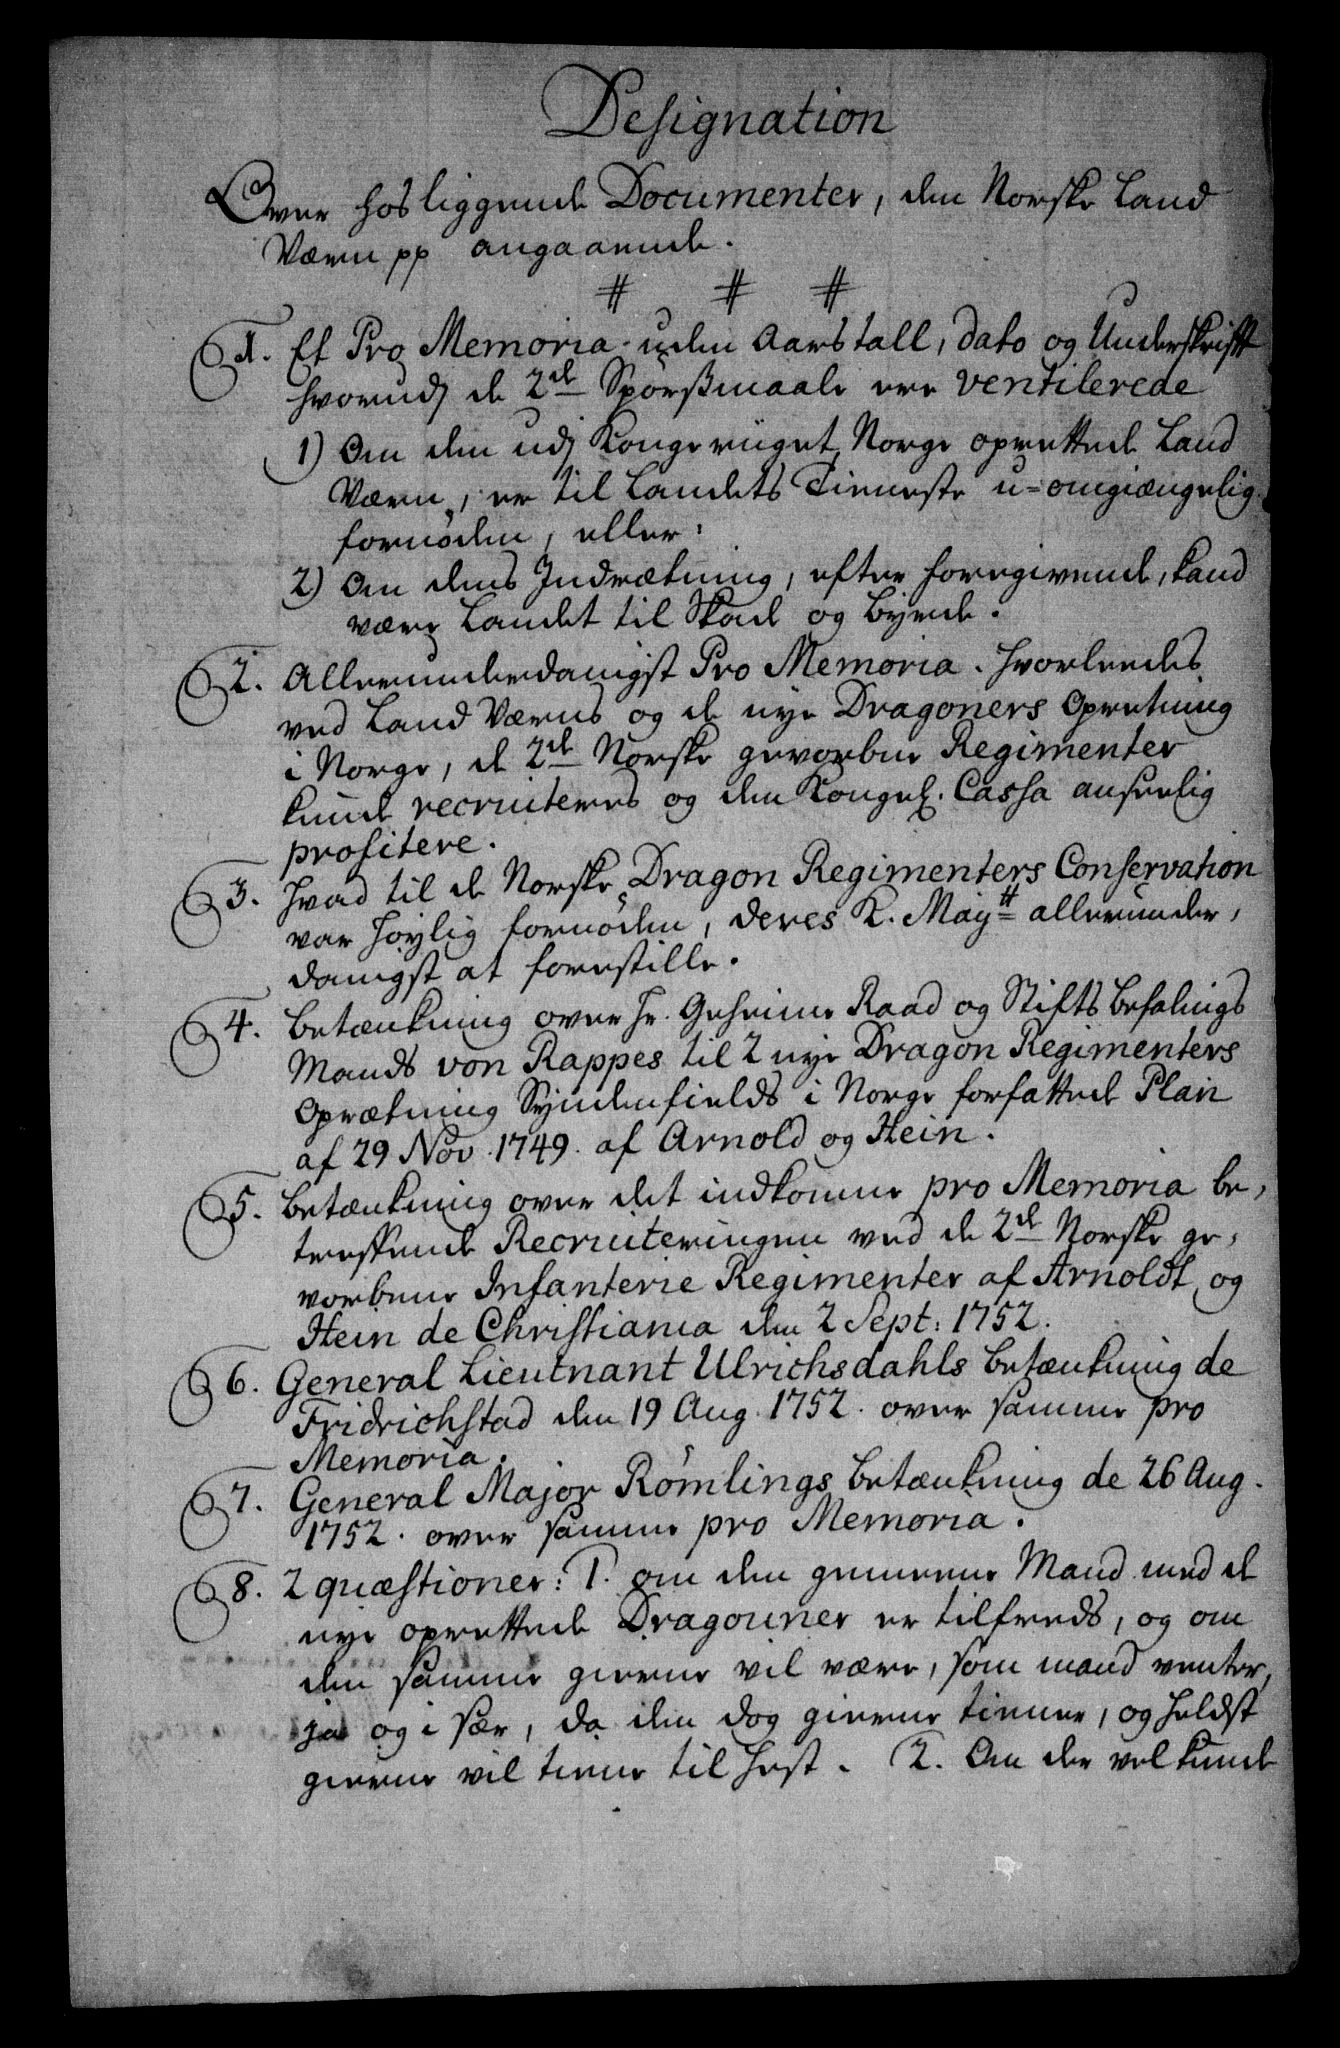 Designation
Over hosliggende Documenter, den Norske Land
Værn pp angaaende.
# # #
1. Et Pro Memoria uden Aarstall, dato og Underskrifft
hvorudj de 2de Spørßmaale ere ventilerede
1) Om den udj Kongeriiget Norge oprettede Land
Værn, er til Landets Tieneste u=omgiængelig
fornøden, eller:
2) Om dens Indrætning, efter foregivende, kand
være Landet til Skade og Byrde.
2. Allerunderdanigst Pro Memoria. hvorledes
ved Land Værns og de nye Dragoners Opretning
i Norge, de 2de Norske gevorbne Regimenter
kunde recruiteres og den Kongel. Cassa anseelig
profitere.
3. Hvad til de Norske Dragon Regimenters Conservation
var høylig fornøden, deres K. Mayt allerunder,
danigst at forestille.
4. Betænkning over Hr. Geheime Raad og Stifts Befalings
Mands von Rappes til 2 nye Dragon Regimenters
Oprætning Syndenfields i Norge forfattede Plan
af 29 Nov. 1749. af Arnold og Hein.
5. Betænkning over det indkomne pro Memoria be,
treffende Recruteringen ved de 2de Norske ge,
vorbene Infanterie Regimenter af Arnoldt og
Hein de Christiania den 2 Sept: 1752.
6. General Lieutnant Ulrichsdahls Betænkning de
Fridrichstad den 19 Aug. 1752. over samme pro
Memoria.
7. General Major Rømlings Betænkning de 26 Aug.
1752. over samme pro Memoria.
8. 2 quæstioner: 1. om den gemeene Mand med de
nye oprettede Dragouner er tilfreds, og om
den samme gierne vil være, som mand venter,
ja og i sær, da den dog gierne tiener, og heldst
gierne vil tiene til Hest. 2. Om der vel kunde